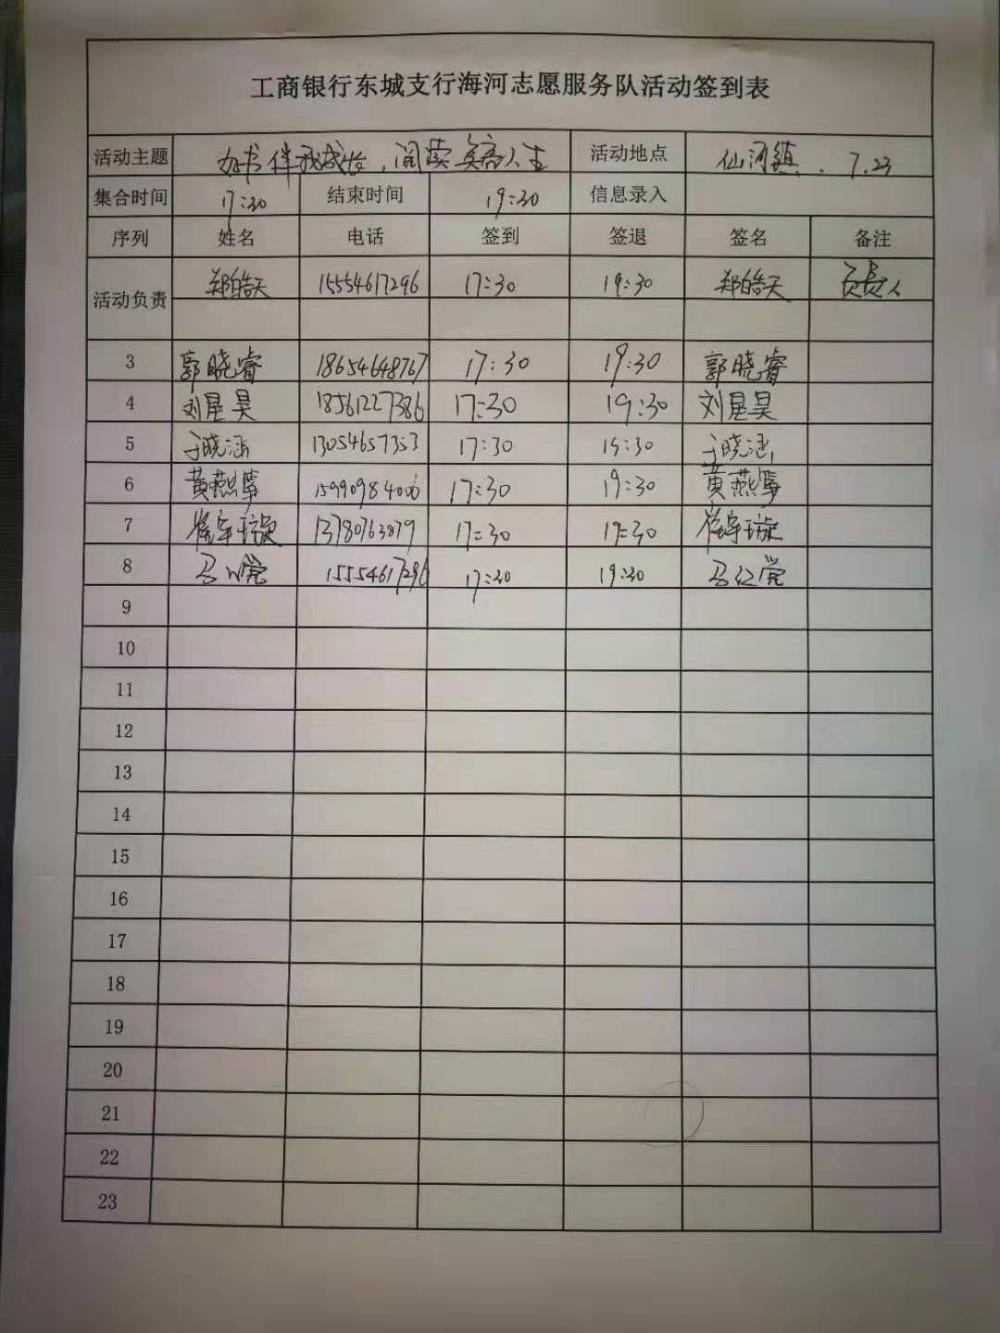 工商银行东城支行海河志愿服务队活动签到表
活动主题 好书伴我成长，阅读美丽人生 活动地点 仙河镇. 7.23
集合时间 17:30 结束时间 19:30 信息录入
序列 姓名 电话 签到 签退 签名 备注
活动负责 郑皓天 15554617296 17:30 19:30 郑皓天 负责人
3 郭晓睿 18654648767 17:30 19:30 郭晓睿
4 刘星昊 18561227386 17:30 19:30 刘星昊
5 于晓涵 13054657353 17:30 19:30 于晓涵
6 黄燕 17:30 19:30 黄燕
7 崔宇璇 13780763879 17:30 19:30 崔宇璇
8 马 15554617296 17:30 19:30 马红觉
9
10
11
12
13
14
15
16
17
18
19
20
21
22
23